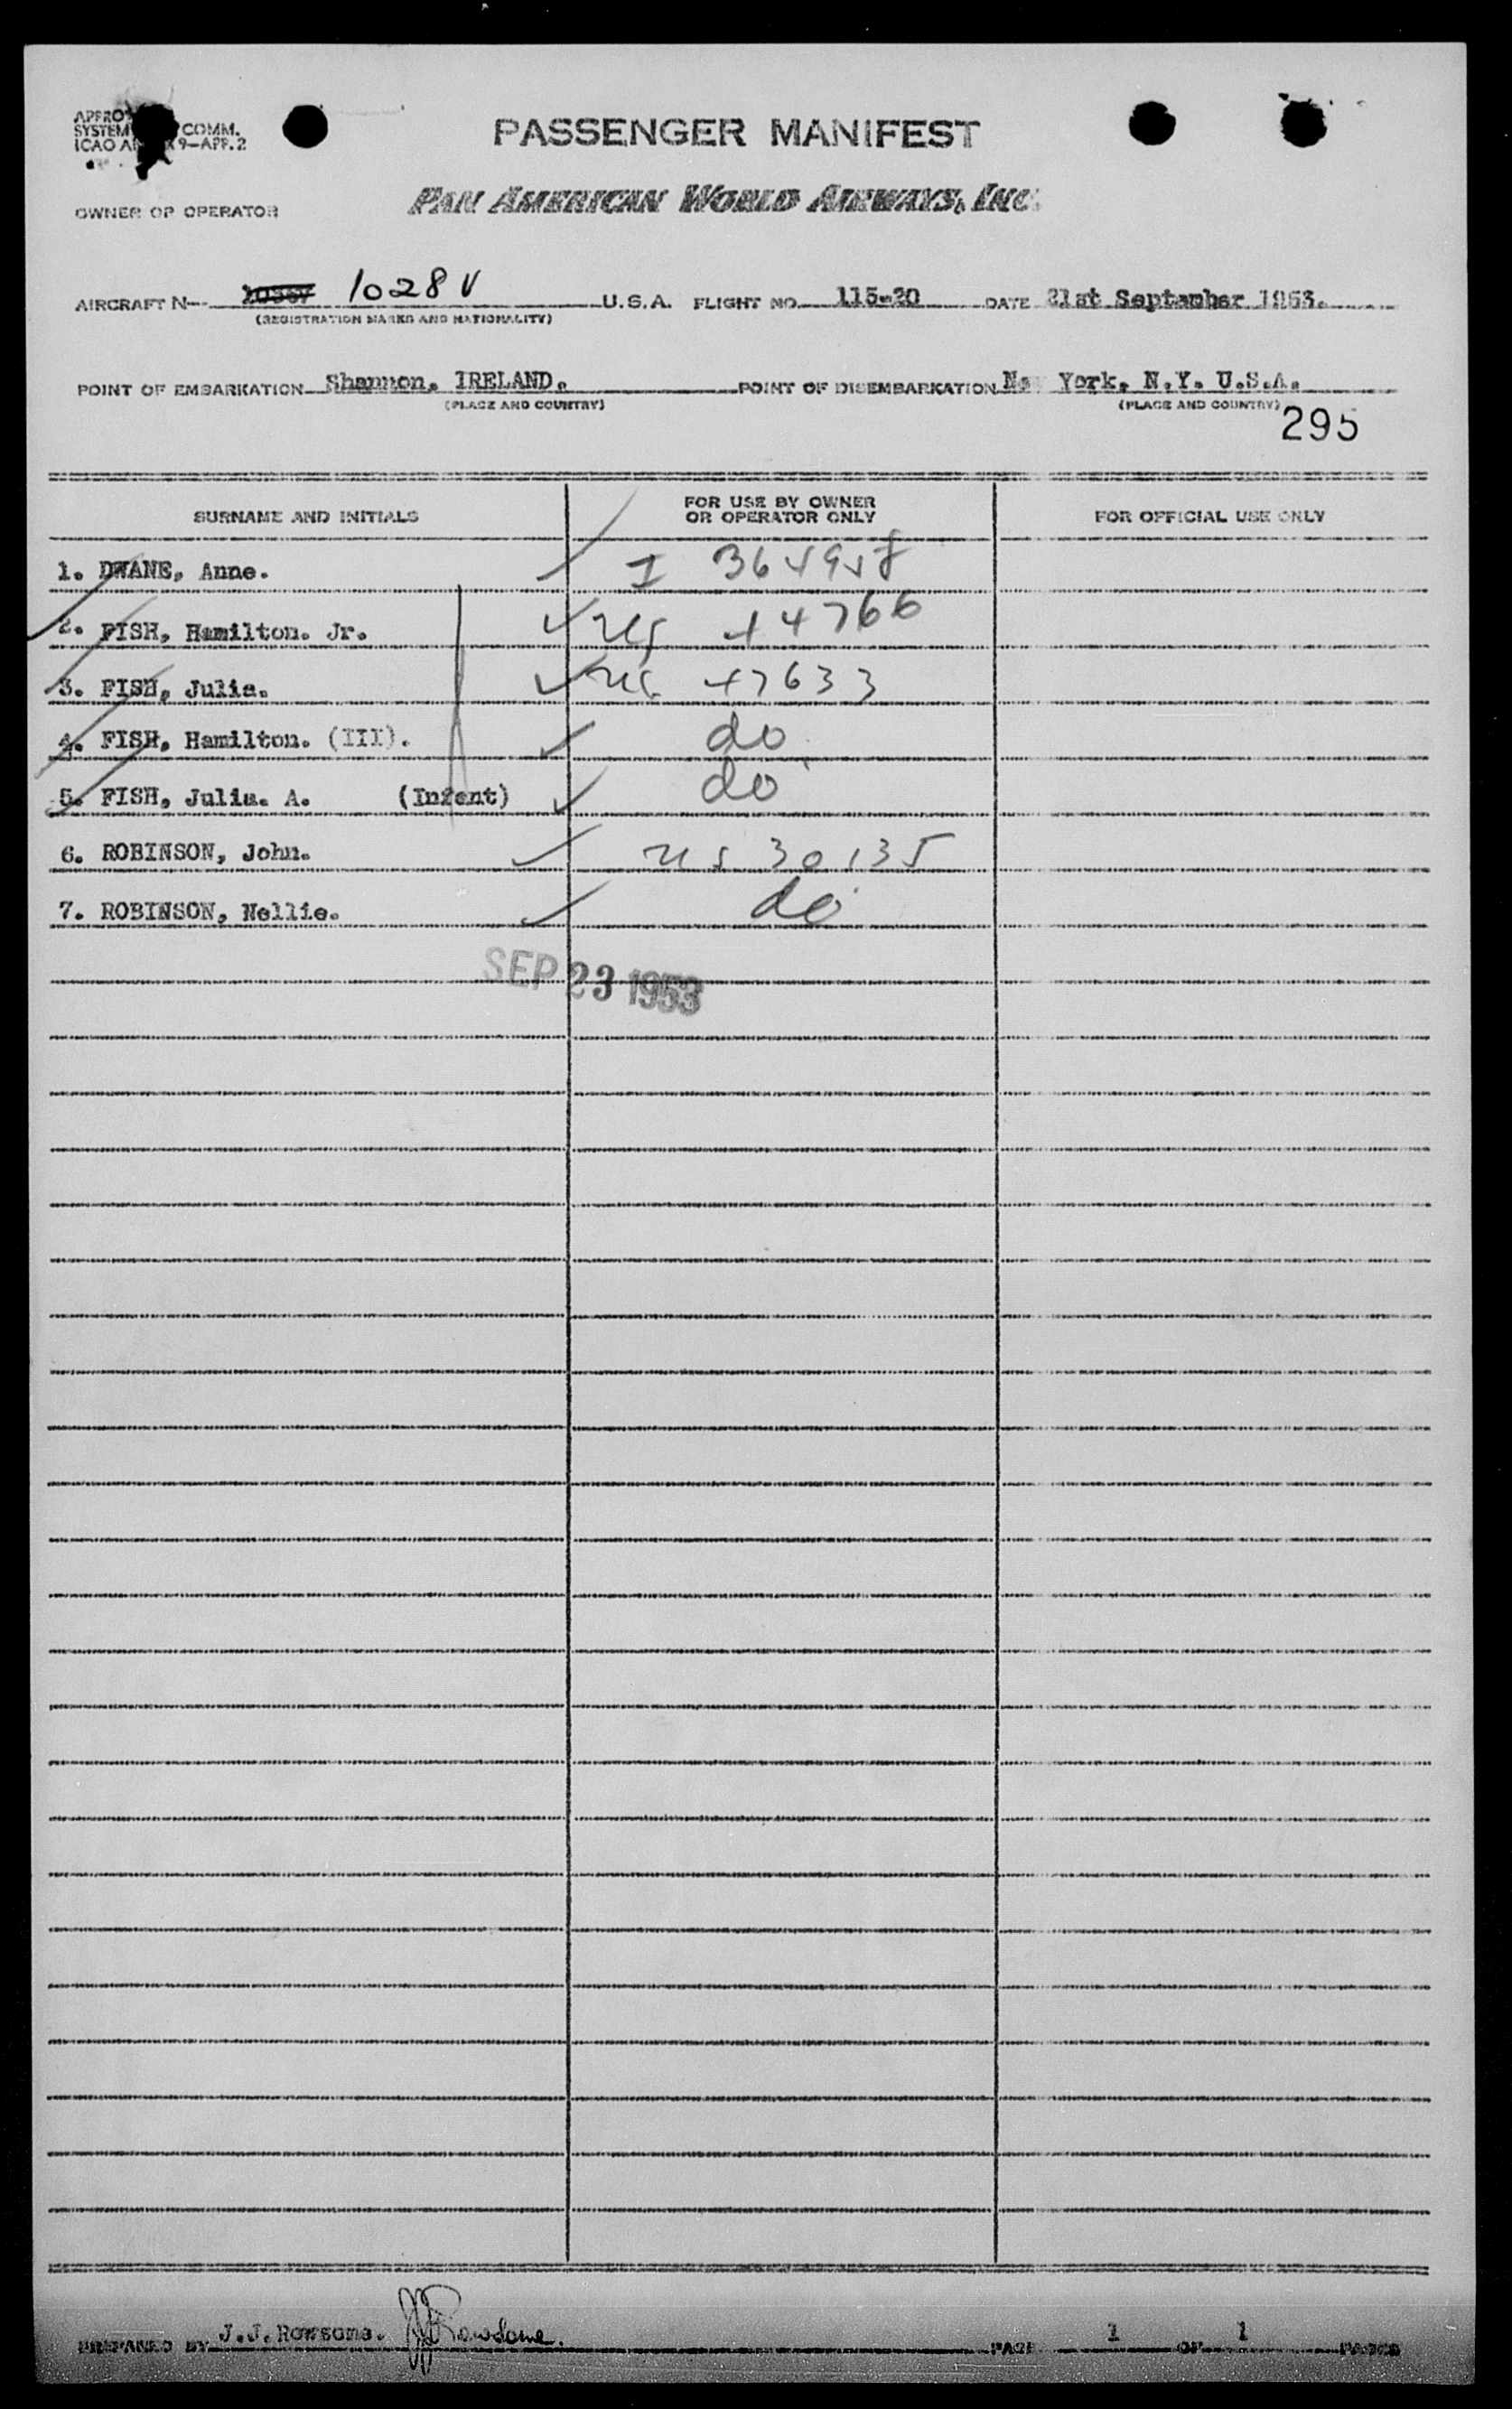 PASSENGER MANIFEST
COMM.
9-APP.2
OWNER OR OPERATOR PAN AMERICAN WORLD AIRWAYS, INC.
AIRCRAFT N- 1028V U.S.A. FLIGHT NO. 115-20 DATE 21st September 1953.
(REGISTRATION MARKS AND NATIONALITY)
POINT OF EMBARKATION Shannon. IRELAND. POINT OF DISEMBARKATION York, N.Y. U.S.A.
(PLACE AND COUNTRY) (PLACE AND COUNTRY)
295
SURNAME AND INITIALS FOR USE BY OWNER OR OPERATOR ONLY FOR OFFICIAL USE ONLY
1. DWANE, Anne. I
2. FISH, Hamilton. Jr. us
3. FISH, Julia. us
4. FISH, Hamilton. (III). do
5. FISH, Julia. A. (Infant) do
6. ROBINSON, John. us 30135
7. ROBINSON, Nellie. do
SEP 23 1953
PREPARED BY J.J. Rowsome. JJ Rowsome. PAGE 1 OF 1 PAGES